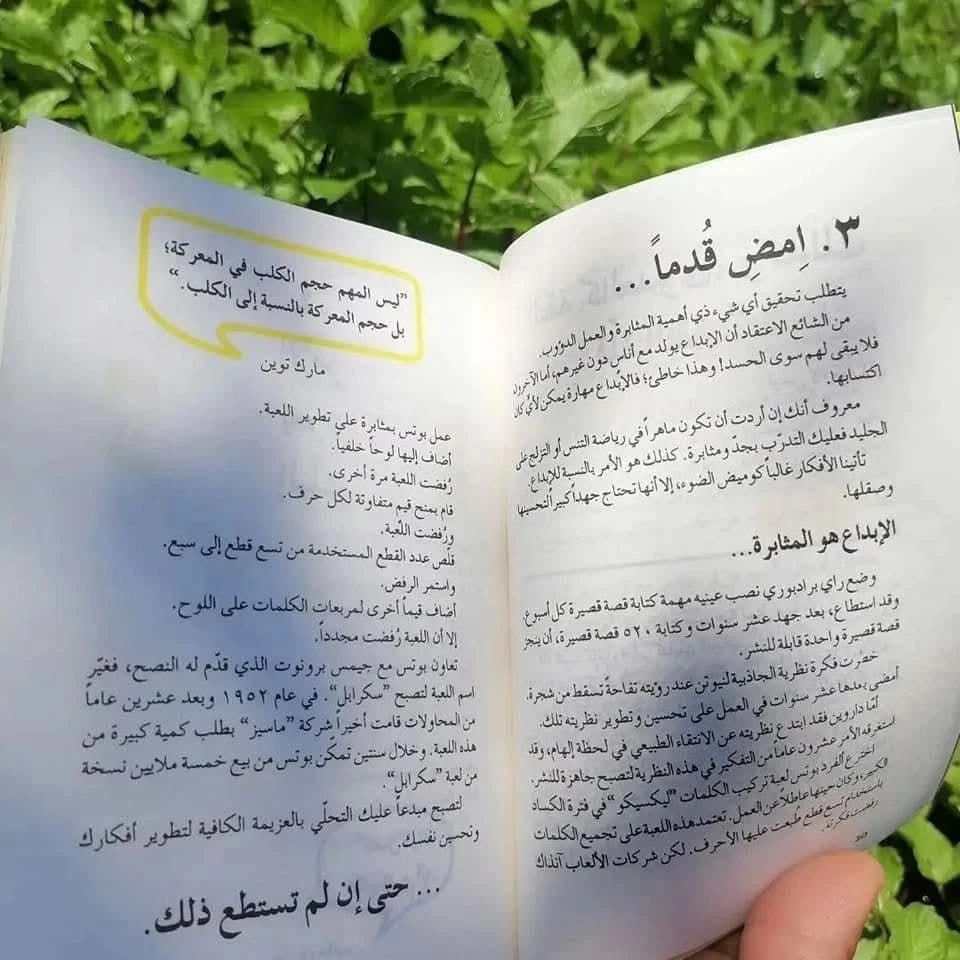 ٣. اِمضِ قُدماً...
يتطلب تحقيق أي شيء ذي أهمية المثابرة والعمل الدؤوب.
من الشائع الاعتقاد أن الإبداع يولد مع أناس دون غيرهم، أما الآخرون
فلا يبقى لهم سوى الحسد! وهذا خاطئ؛ فالإبداع مهارة يمكن لأيٍّ كان
اكتسابها.
معروف أنك إن أردت أن تكون ماهراً في رياضة التنس أو التزلج على
الجليد فعليك التدرّب بجدّ ومثابرة. كذلك هو الأمر بالنسبة للإبداع.
تأتينا الأفكار غالباً كوميض الضوء، إلا أنها تحتاج جهداً كبيراً لتحسينها
وصقلها.
الإبداع هو المثابرة...
وضع راي برادبوري نصب عينيه مهمة كتابة قصة قصيرة كل أسبوع.
وقد استطاع، بعد جهد عشر سنوات وكتابة ٥٢٠ قصة قصيرة، أن ينجز
قصة قصيرة واحدة قابلة للنشر.
خطرت فكرة نظرية الجاذبية لنيوتن عند رؤيته تفاحةً تسقط من شجرة.
أمضى بعدها عشر سنوات في العمل على تحسين وتطوير نظريته تلك.
أمّا داروين فقد ابتدع نظريته عن الانتقاء الطبيعي في لحظة إلهام، وقد
استغرقه الأمر عشرون عاماً من التفكير في هذه النظرية لتصبح جاهزة للنشر.
اخترع ألفرد بوتس لعبة تركيب الكلمات "ليكسيكو" في فترة الكساد
الكبير، وكان حينها عاطلاً عن العمل. تعتمد هذه اللعبة على تجميع الكلمات
باستخدام تسع قطع طُبعت عليها الأحرف. لكن شركات الألعاب آنذاك
رفضت فكرته.
"ليس المهم حجم الكلب في المعركة؛
بل حجم المعركة بالنسبة إلى الكلب."
مارك توين
عمل بوتس بمثابرة على تطوير اللعبة.
أضاف إليها لوحاً خلفياً.
رُفضت اللعبة مرة أخرى.
قام بمنح قيم متفاوتة لكل حرف.
ورُفضت اللّعبة.
قلّص عدد القطع المستخدمة من تسع قطع إلى سبع.
واستمر الرفض.
أضاف قيماً أخرى لمربعات الكلمات على اللوح.
إلا أن اللعبة رُفضت مجدداً.
تعاون بوتس مع جيمس برونوت الذي قدّم له النصح، فغيّر
اسم اللعبة لتصبح "سكرابل". في عام ١٩٥٢ وبعد عشرين عاماً
من المحاولات قامت أخيراً شركة "ماسيز" بطلب كمية كبيرة من
هذه اللعبة. وخلال سنتين تمكّن بوتس من بيع خمسة ملايين نسخة
من لعبة "سكرابل".
لتصبح مبدعاً عليك التحلّي بالعزيمة الكافية لتطوير أفكارك
وتحسين نفسك.
... حتى إن لم تستطع ذلك.